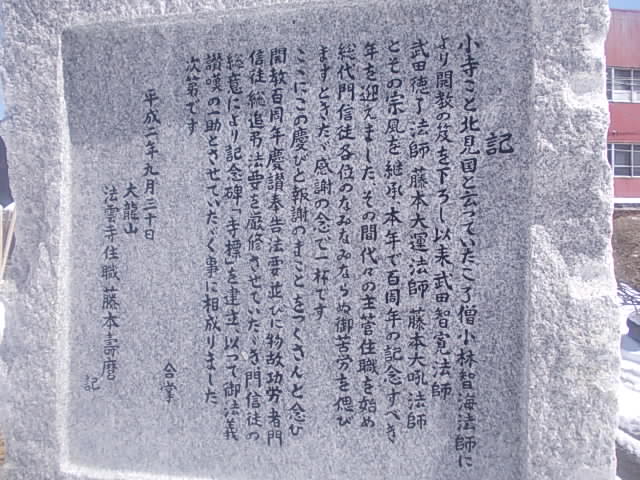 記
小寺こと北見国と云っていたころ僧小林智海法師に
より開教の笈を下ろし以来武田智寛法師
武田徳了法師 藤本大運法師 藤本大吼法師
とその宗風を継承 本年で百周年の記念すべき
年を迎えました その間代々の主管住職を始め
総代門信徒各位のなみなみならぬ御苦労を偲び
ますときただ感謝の念で一杯です
ここにこの慶びと報謝のまことをつくさんと念ひ
開教百周年慶讃奉告法要並びに物故功労者門
信徒総追弔法要を厳修させていただき門信徒の
総意により記念碑「寺標」を建立 以って御法義
讃嘆の一助とさせていただく事に相成りました
次第です
合掌
平成二年九月三十日
大龍山
法雲寺住職 藤本壽麿
記